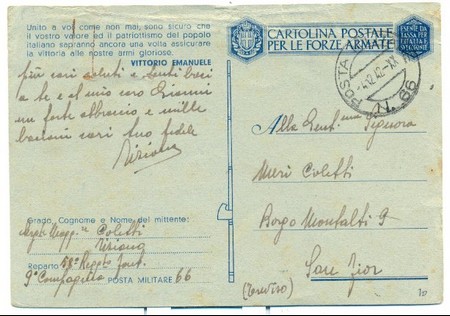 Unito a voi come non mai, sono sicuro che
il vostro valore ed il patriottismo del popolo
italiano sapranno ancora una volta assicurare
la vittoria alle nostre armi gloriose.
VITTORIO EMANUELE
più cari saluti e tanti baci
a te e al mio caro Gianni
un forte abbraccio e mille
bacioni cari tuo fedele
Tiziano
Grado, Cognome e Nome del mittente:
Serg. Magg. Coletti
Tiziano
Reparto 58° Reggto Fant.
9° Compagnia POSTA MILITARE 66
CARTOLINA POSTALE
PER LE FORZE ARMATE
ESENTE DA
TASSA PER
POSTA
N. 66
Alla Gent.ma Signora
Meri Coletti
Borgo Montalti 9
San Fior
(Treviso)